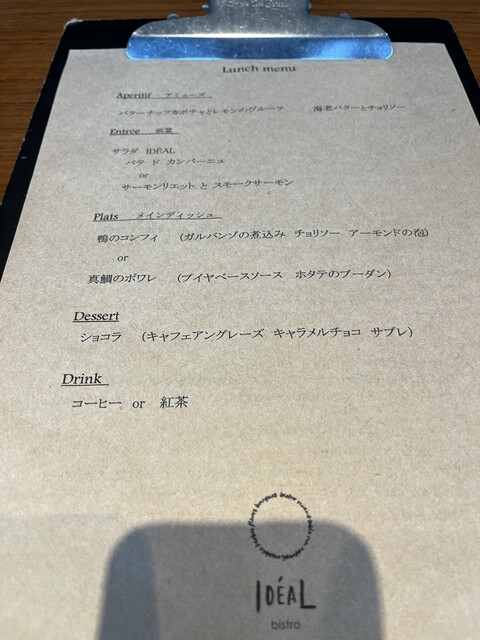 Lunch menu
Aperitif アミューズ
バターナッツカボチャとレモンのヴルーテ 海老バターとチョリソー
Entrée 前菜
サラダ IDÉAL
パテ ド カンパーニュ
or
サーモンリエット と スモークサーモン
Plats メインディッシュ
鴨のコンフィ (ガルバンゾの煮込み チョリソー アーモンドの泡)
or
真鯛のポワレ (ブイヤベースソース ホタテのブーダン)
Dessert
ショコラ (キャフェアングレーズ キャラメルチョコ サブレ)
Drink
コーヒー or 紅茶
IDÉAL
bistro